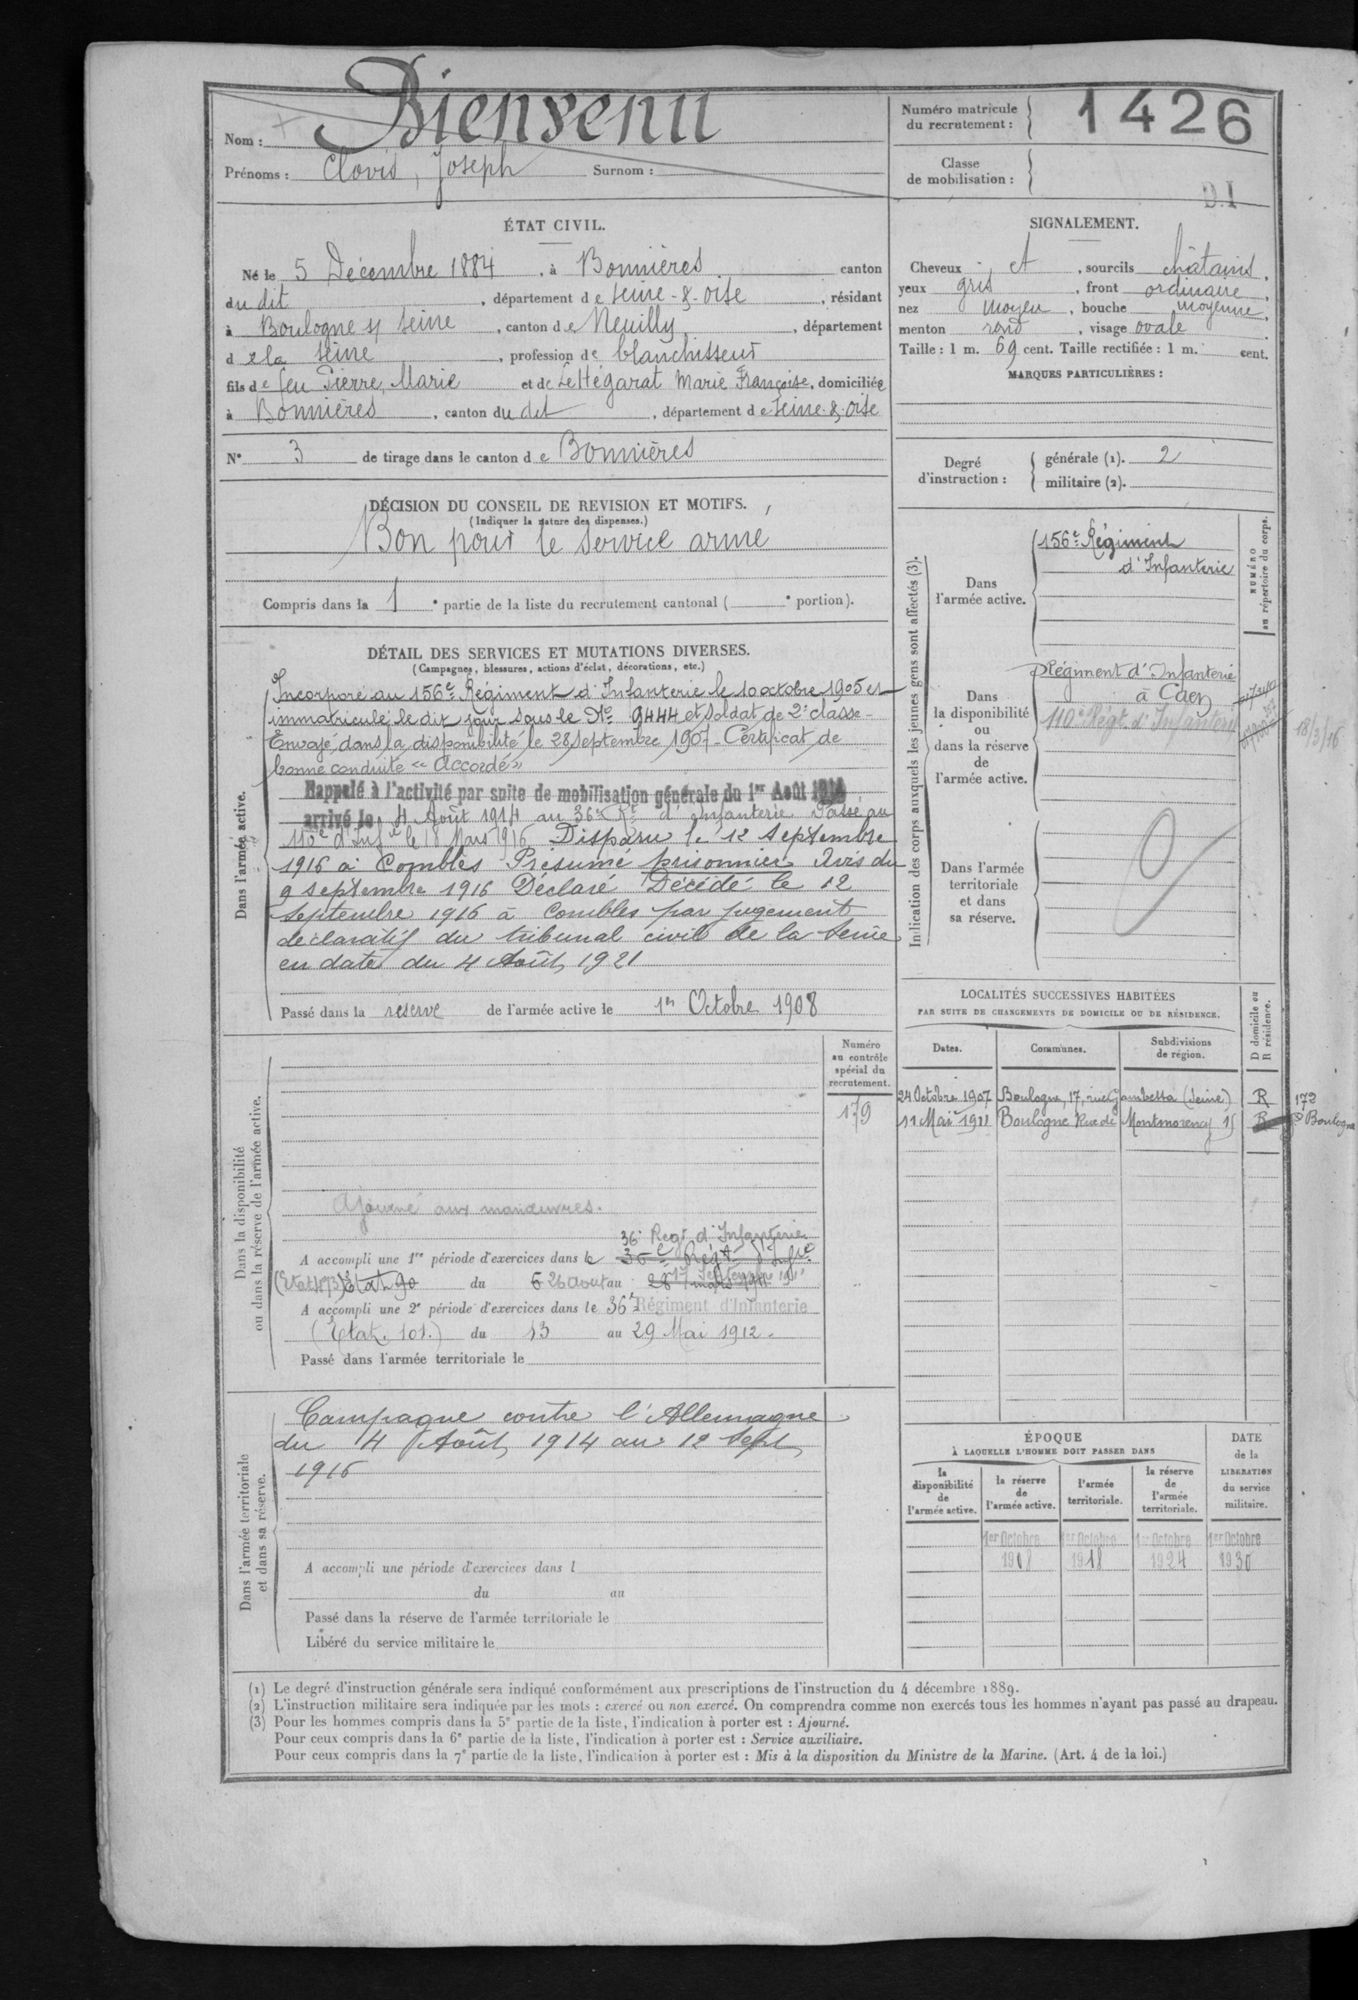 Nom : Bienvenu
Prénoms : Clovis, Joseph Surnom :
Numéro matricule du recrutement : 1426
Classe de mobilisation :
D.I
ÉTAT CIVIL.
Né le 5 Décembre 1884, à Bonnières canton
du dit, département de Seine-&-oise, résidant
à Boulogne s/ Seine, canton de Neuilly, département
de la Seine, profession de blanchisseur
fils de feu Pierre, Marie et de Le Hégarat Marie Françoise, domiciliée
à Bonnières, canton du dit, département de Seine-&-oise
N° 3 de tirage dans le canton de Bonnières
SIGNALEMENT.
Cheveux et, sourcils châtains,
yeux gris, front ordinaire,
nez moyen, bouche moyenne,
menton rond, visage ovale
Taille : 1 m. 69 cent. Taille rectifiée : 1 m. cent.
MARQUES PARTICULIÈRES :
Degré d'instruction :
générale (1). 2
militaire (2).
DÉCISION DU CONSEIL DE REVISION ET MOTIFS.
(Indiquer la nature des dispenses.)
Bon pour le Service armé
Compris dans la 1 e partie de la liste du recrutement cantonal ( e portion).
DÉTAIL DES SERVICES ET MUTATIONS DIVERSES.
(Campagnes, blessures, actions d'éclat, décorations, etc.)
Dans l'armée active.
Incorporé au 156e Régiment d'Infanterie le 10 octobre 1905 et
immatriculé le dit jour sous le No 9444 et soldat de 2e classe-
Envoyé dans la disponibilité le 28 septembre 1907- Certificat de
bonne conduite "Accordé"
Rappelé à l'activité par suite de mobilisation générale du 1er Août 1914
arrivé le 4 Août 1914 au 36e Rt d'Infanterie Passé au
110e d'Infie le 18 Mars 1916 Disparu le 12 Septembre
1916 à Combles Présumé prisonnier Avis du
9 septembre 1916 Déclaré Décédé le 12
Septembre 1916 à Combles par jugement
déclaratif du tribunal civil de la Seine
en date du 4 Août 1921
Passé dans la réserve de l'armée active le 1er Octobre 1908
Indication des corps auxquels les jeunes gens sont affectés (3).
NUMÉRO au répertoire du corps.
Dans l'armée active.
156e Régiment
d'Infanterie
Dans la disponibilité ou dans la réserve de l'armée active.
Régiment d'Infanterie
à Caen
110e Régt d'Infanterie
18/3/16
Dans l'armée territoriale et dans sa réserve.
LOCALITÉS SUCCESSIVES HABITÉES
PAR SUITE DE CHANGEMENTS DE DOMICILE OU DE RÉSIDENCE.
D domicile ou R résidence.
Dates. Communes. Subdivisions de région.
24 Octobre 1907 Boulogne, 17, rue Gambetta (Seine) R 172
11 Mai 1911 Boulogne Rue de Montmorency 15 R Boulogne
Dans la disponibilité ou dans la réserve de l'armée active.
Numéro au contrôle spécial du recrutement.
179
Ajourné aux manœuvres.
36e Regt d'Infanterie
A accompli une 1re période d'exercices dans le 36e Régt d'Infie
(Etat 173) Etat 90 du 6 26 aout au 28 mars 1911 17 Septembre 1911
A accompli une 2e période d'exercices dans le 36e Régiment d'Infanterie
(Etat. 101.) du 13 au 29 Mai 1912.
Passé dans l'armée territoriale le
Dans l'armée territoriale et dans sa réserve.
Campagne contre l'Allemagne
du 4 Août 1914 au 12 Sept
1916
A accompli une période d'exercices dans l
du au
Passé dans la réserve de l'armée territoriale le
Libéré du service militaire le
ÉPOQUE
À LAQUELLE L'HOMME DOIT PASSER DANS
DATE de la LIBÉRATION du service militaire.
la disponibilité de l'armée active. la réserve de l'armée active. l'armée territoriale. la réserve de l'armée territoriale.
1er Octobre 1er Octobre 1er Octobre 1er Octobre
1908 1918 1924 1930
(1) Le degré d'instruction générale sera indiqué conformément aux prescriptions de l'instruction du 4 décembre 1889.
(2) L'instruction militaire sera indiquée par les mots : exercé ou non exercé. On comprendra comme non exercés tous les hommes n'ayant pas passé au drapeau.
(3) Pour les hommes compris dans la 5e partie de la liste, l'indication à porter est : Ajourné.
Pour ceux compris dans la 6e partie de la liste, l'indication à porter est : Service auxiliaire.
Pour ceux compris dans la 7e partie de la liste, l'indication à porter est : Mis à la disposition du Ministre de la Marine. (Art. 4 de la loi.)